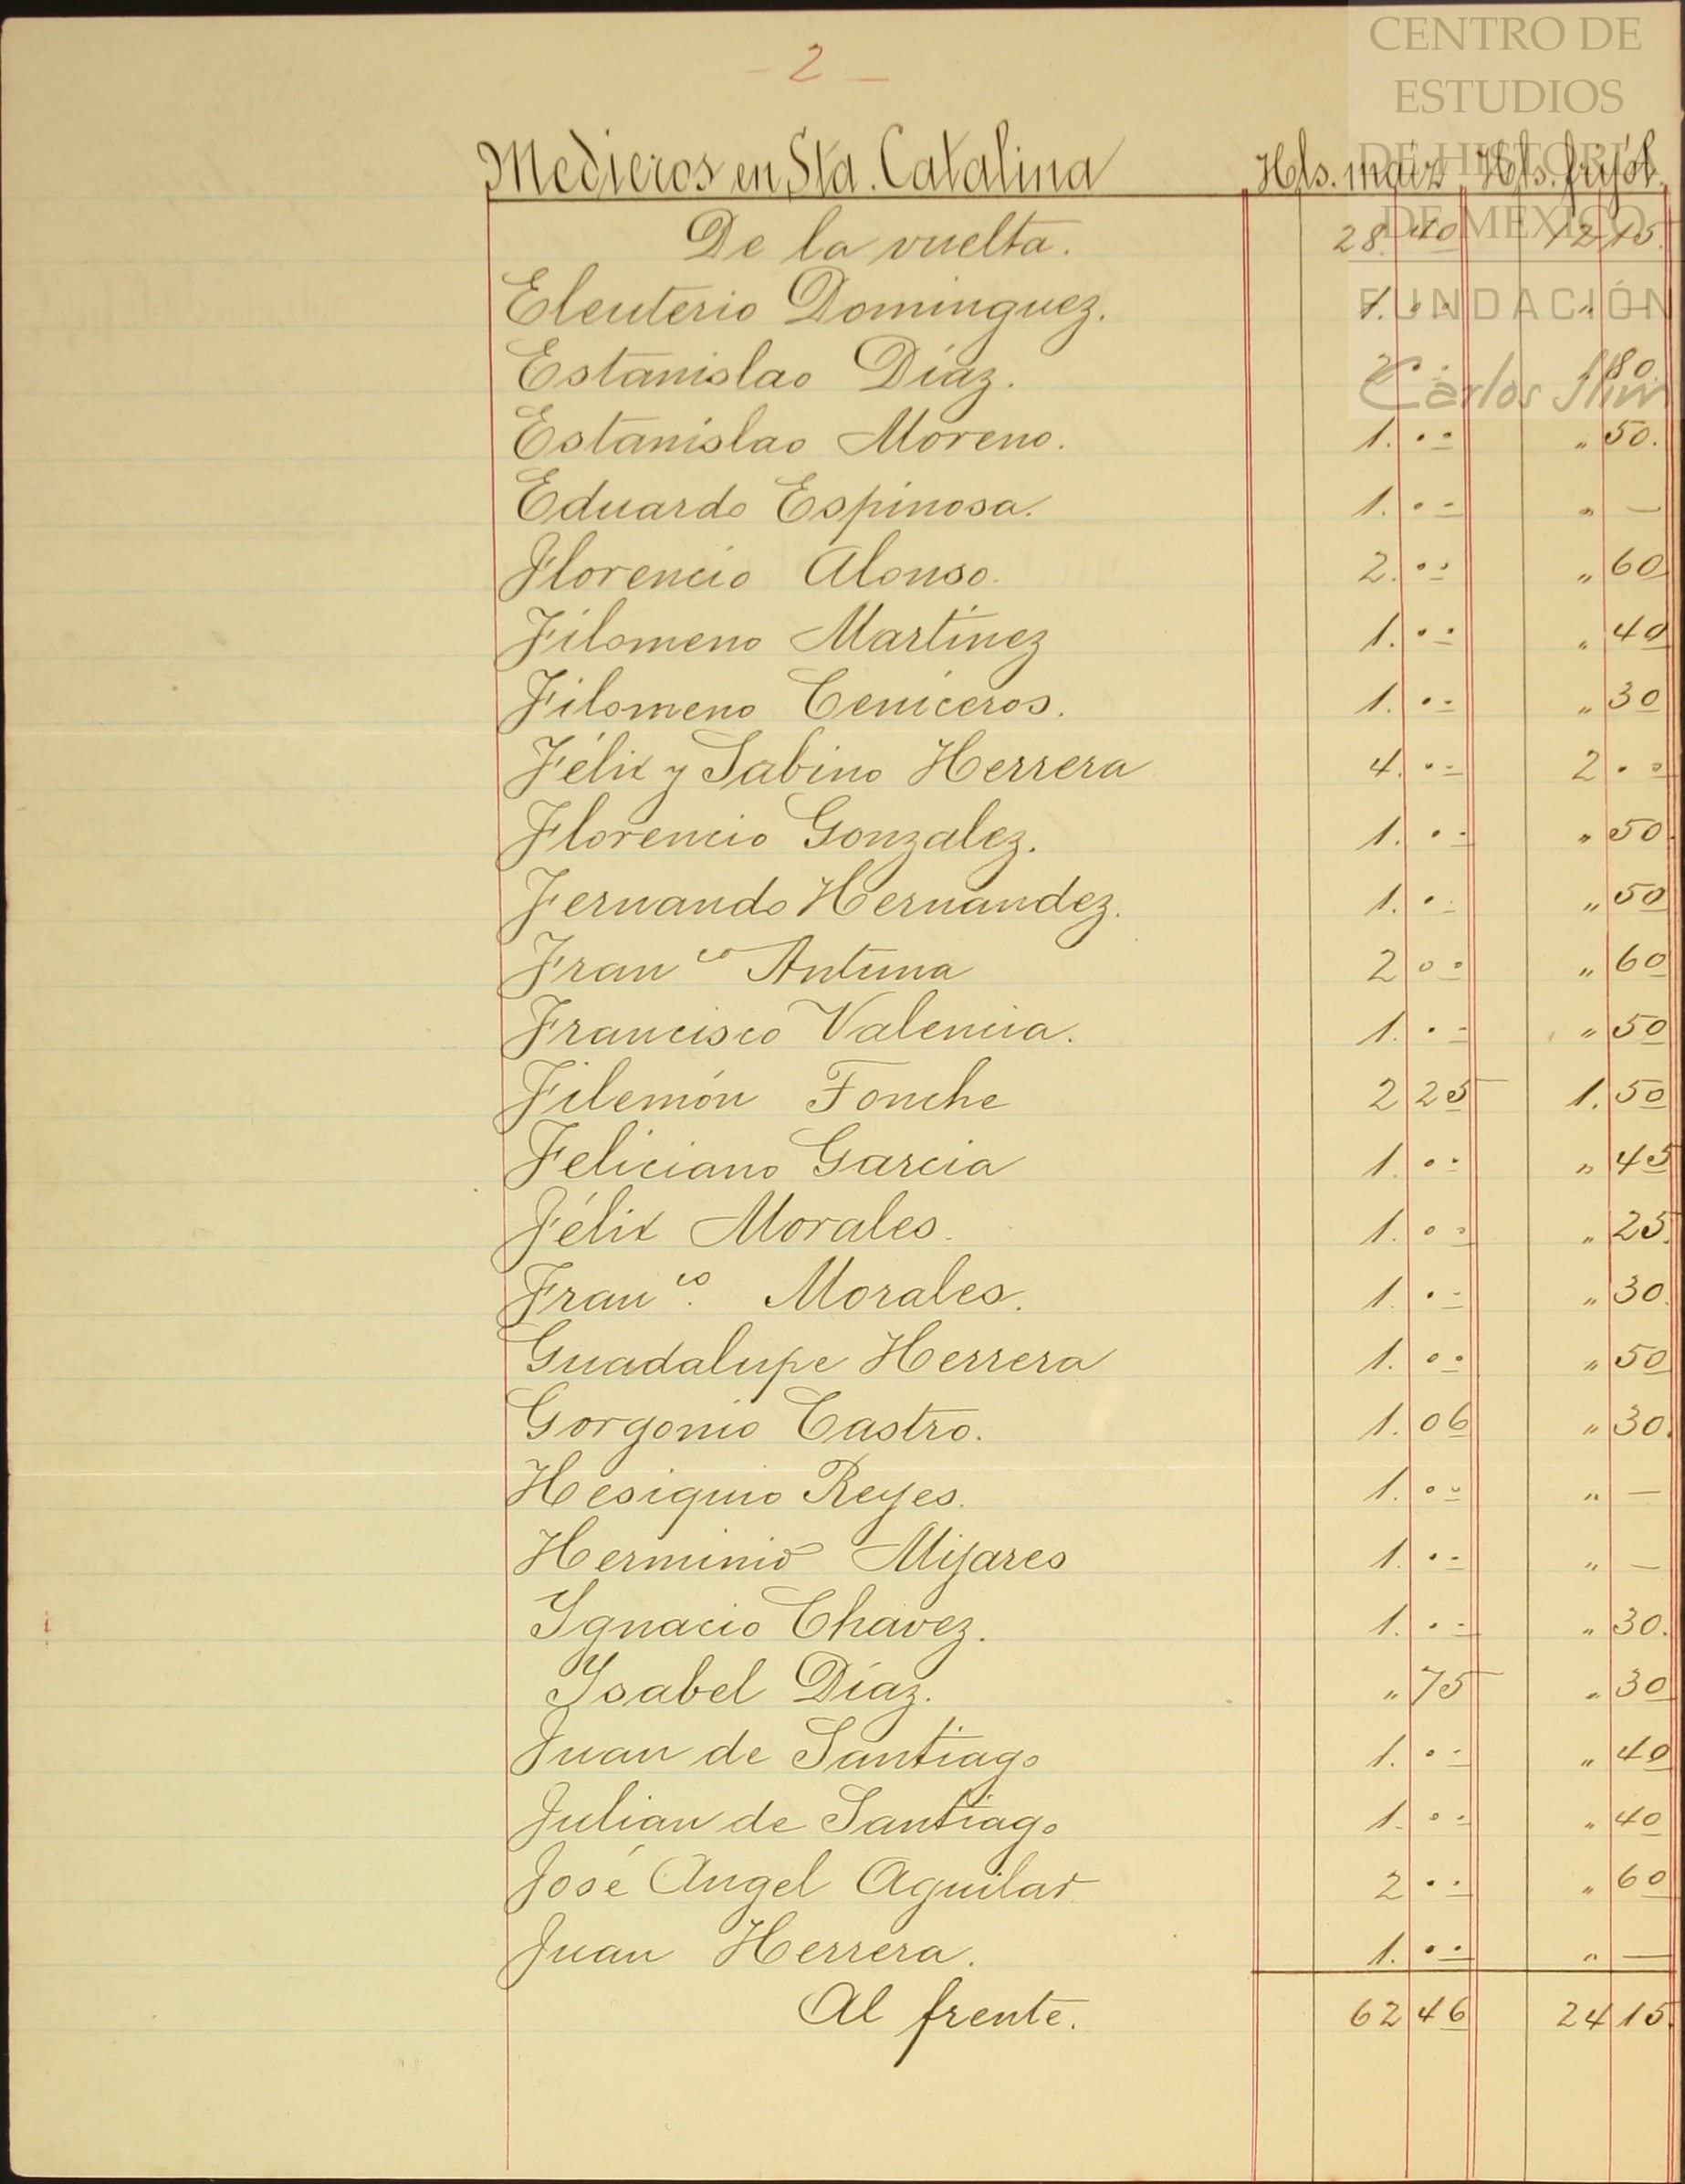 - 2 -
CENTRO DE
ESTUDIOS
DE HISTORIA
DE MEXICO
FUNDACIÓN
Carlos Slim
Medieros en Sta. Catalina Hls. maiz Hls. frijol.
De la vuelta. 28. 40 12 15.
Eleuterio Dominguez. 1. 00 „ —
Estanislao Díaz. 2. 00 „ 80.
Estanislao Moreno. 1. 00 „ 50.
Eduardo Espinosa. 1. 00 „ —
Florencio Alonso. 2. 00 „ 60
Filomeno Martínez 1. 00 „ 40
Filomeno Ceniceros. 1. 00 „ 30
Félix y Sabino Herrera 4. 00 2 00
Florencio Gonzalez. 1. 00 „ 50.
Fernando Hernandez. 1. 00 „ 50
Franco Antuna 2 00 „ 60
Francisco Valencia. 1. 00 „ 50
Filemón Fonche 2 25 1. 50
Feliciano Garcia 1. 00 „ 45
Félix Morales. 1. 00 „ 25.
Franco. Morales. 1. 00 „ 30.
Guadalupe Herrera 1. 00 „ 50
Gorgonio Castro. 1. 06 „ 30.
Hesiquio Reyes. 1. 00 „ —
Herminio Mijares 1. 00 „ —
Ygnacio Chavez. 1. 00 „ 30.
Ysabel Díaz. „ 75 „ 30
Juan de Santiago 1. 00 „ 40
Julian de Santiago 1. 00 „ 40
José Angel Aguilar 2 00 „ 60
Juan Herrera. 1. 00 „ —
Al frente. 62 46 24 15.